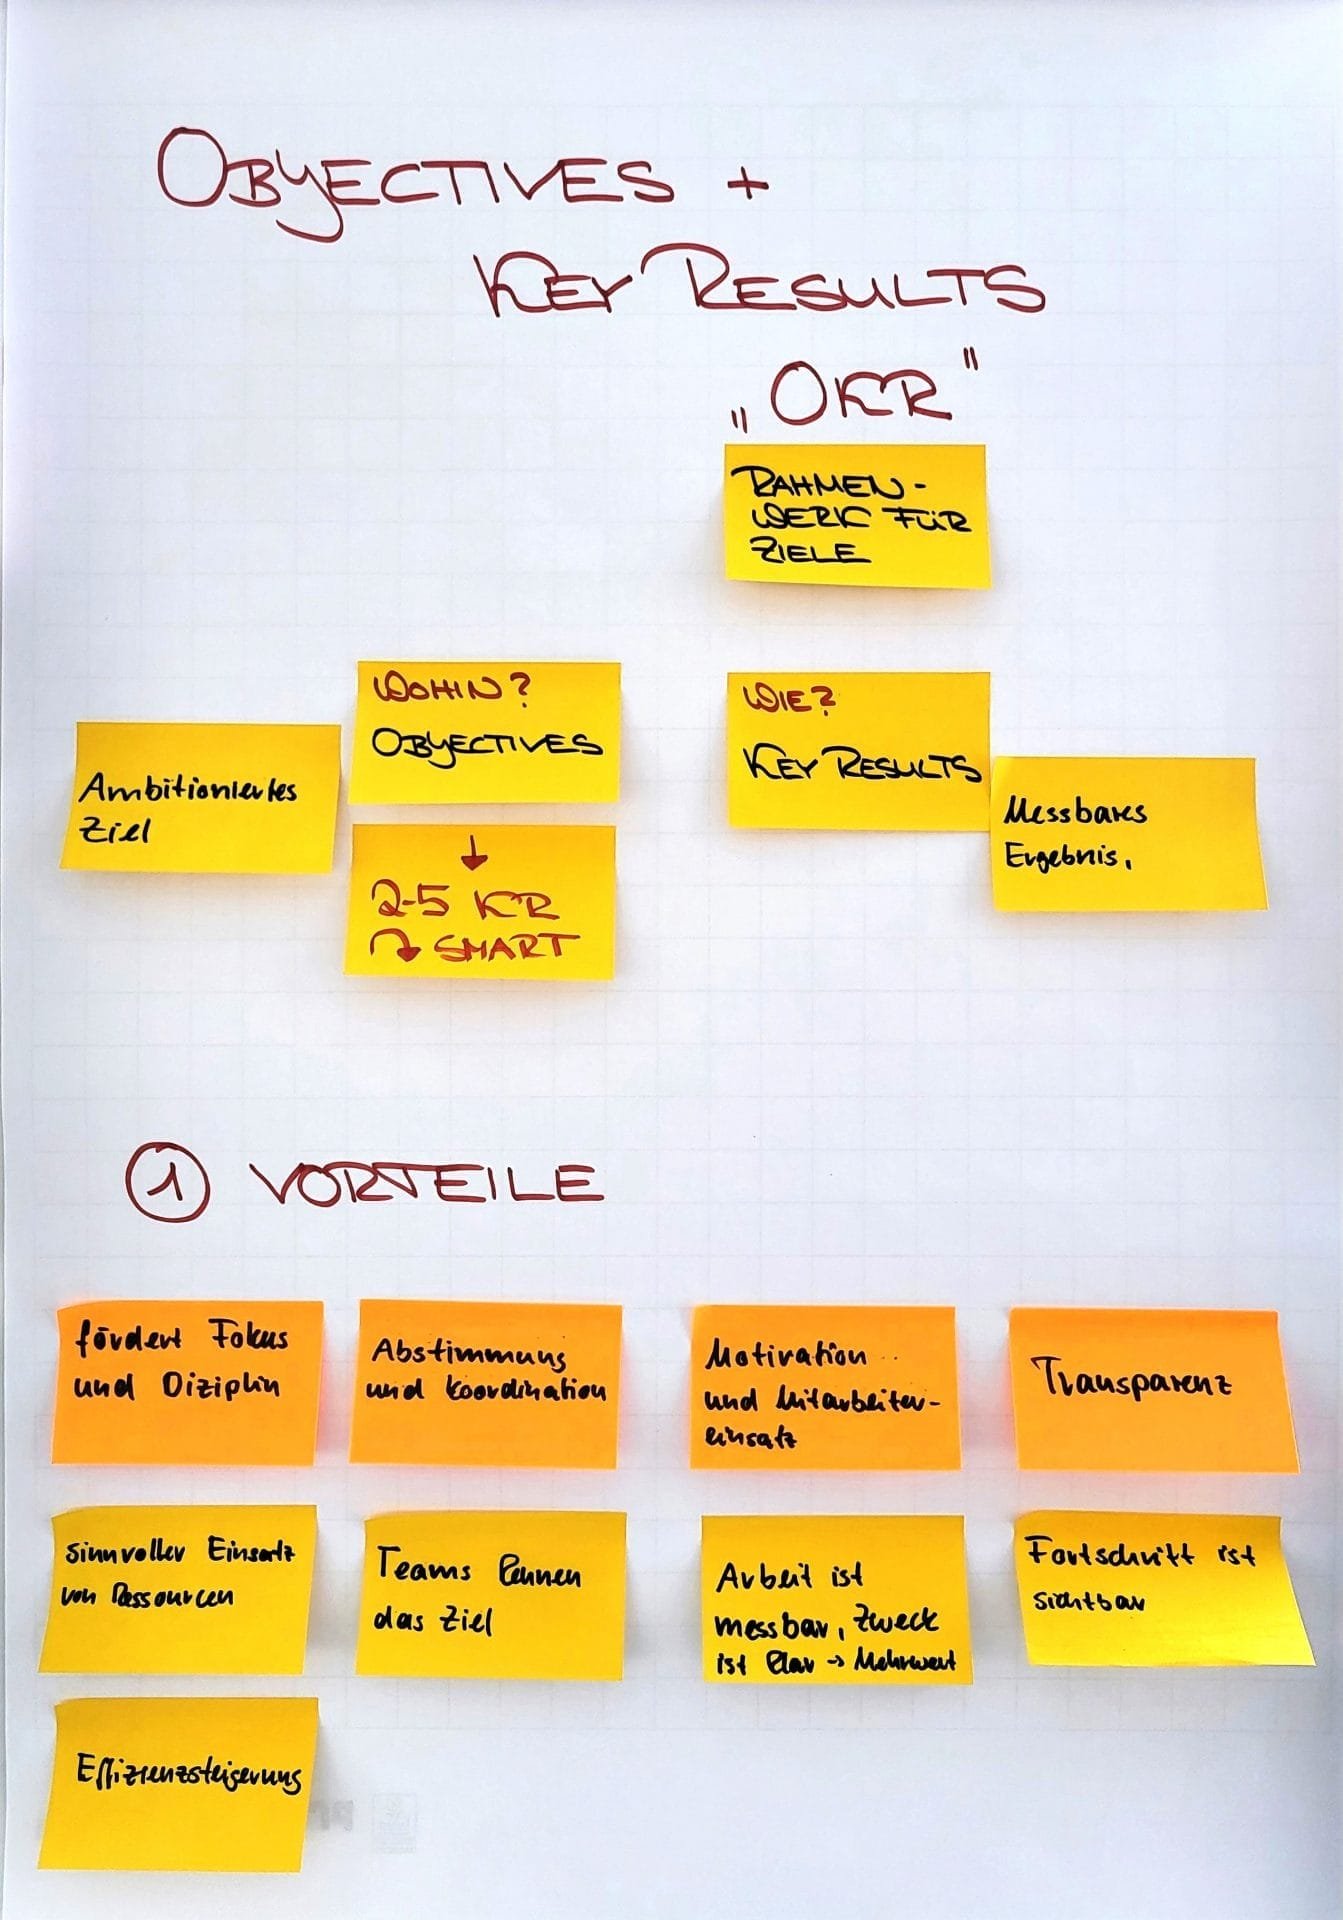 OBJECTIVES +
KEY RESULTS
„OKR"
RAHMEN-
WERK FÜR
ZIELE
WOHIN?
OBJECTIVES
WIE?
KEY RESULTS
Ambitioniertes
Ziel
Messbares
Ergebnis.
↓
2-5 KR
↷ SMART
1 VORTEILE
fördert Fokus
und Diziplin
Abstimmung
und Koordination
Motivation
und Mitarbeiter-
einsatz
Transparenz
sinnvoller Einsatz
von Ressourcen
Teams kennen
das Ziel
Arbeit ist
messbar, Zweck
ist klar → Mehrwert
Fortschritt ist
sichtbar
Effizienzsteigerung